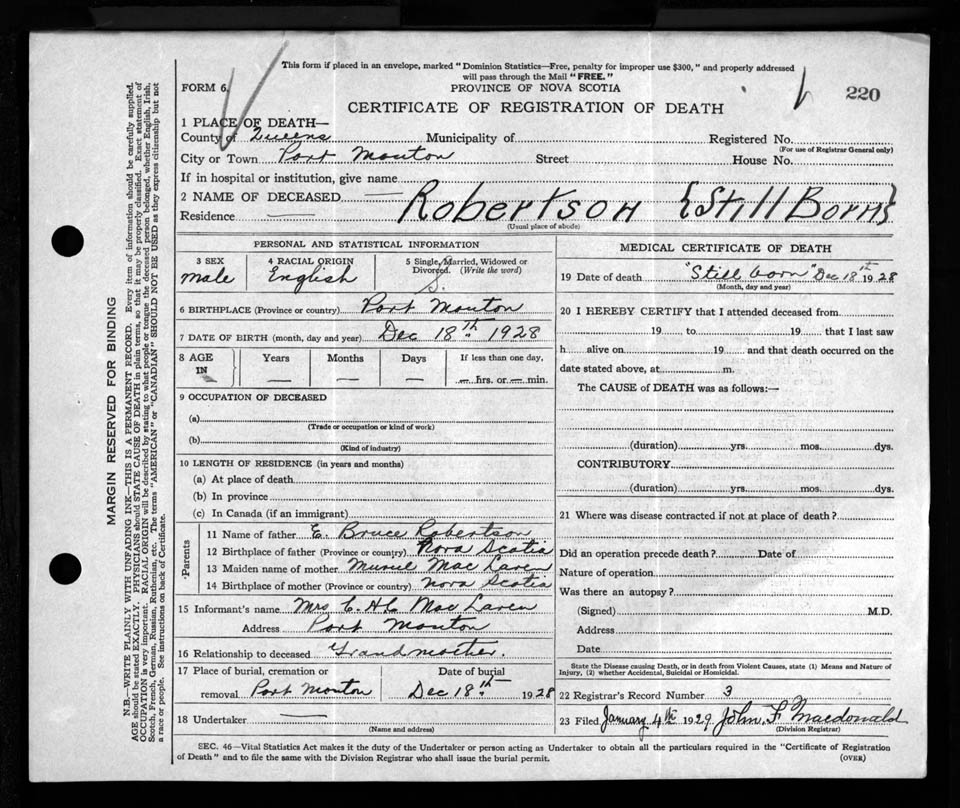 This form if placed in an envelope, marked "Dominion Statistics—Free, penalty for improper use $300," and properly addressed
will pass through the Mail "FREE."
FORM 6.
PROVINCE OF NOVA SCOTIA
220
CERTIFICATE OF REGISTRATION OF DEATH
1 PLACE OF DEATH—
County of Queens Municipality of Registered No.
(For use of Registrar General only)
City or Town Port Mouton Street House No.
If in hospital or institution, give name
2 NAME OF DECEASED — Robertson {Still Born}
Residence —
(Usual place of abode)
PERSONAL AND STATISTICAL INFORMATION
3 SEX male
4 RACIAL ORIGIN English
5 Single, Married, Widowed or Divorced. (Write the word) S.
6 BIRTHPLACE (Province or country) Port Mouton
7 DATE OF BIRTH (month, day and year) Dec 18th 1928
8 AGE IN Years — Months — Days — If less than one day, — hrs. or — min.
9 OCCUPATION OF DECEASED
(a)
(Trade or occupation or kind of work)
(b)
(Kind of industry)
10 LENGTH OF RESIDENCE (in years and months)
(a) At place of death
(b) In province
(c) In Canada (if an immigrant)
Parents
11 Name of father E. Bruce Robertson
12 Birthplace of father (Province or country) Nova Scotia
13 Maiden name of mother Muriel Mac Laren
14 Birthplace of mother (Province or country) Nova Scotia
15 Informant's name Mrs C. H C Mac Laren
Address Port Mouton
16 Relationship to deceased Grandmother.
17 Place of burial, cremation or removal Port Mouton
Date of burial Dec 18th 1928
18 Undertaker —
(Name and address)
MEDICAL CERTIFICATE OF DEATH
19 Date of death "Still born" Dec 18th 1928
(Month, day and year)
20 I HEREBY CERTIFY that I attended deceased from
19 to 19 that I last saw
h alive on 19 and that death occurred on the
date stated above, at m.
The CAUSE of DEATH was as follows:—
(duration) yrs. mos. dys.
CONTRIBUTORY
(duration) yrs. mos. dys.
21 Where was disease contracted if not at place of death?
Did an operation precede death? Date of
Nature of operation
Was there an autopsy?
(Signed) M.D.
Address
Date
State the Disease causing Death, or in death from Violent Causes, state (1) Means and Nature of
Injury, (2) whether Accidental, Suicidal or Homicidal.
22 Registrar's Record Number 3
23 Filed January 4th 1929 John. F Macdonald
(Division Registrar)
SEC. 46—Vital Statistics Act makes it the duty of the Undertaker or person acting as Undertaker to obtain all the particulars required in the "Certificate of Registration
of Death" and to file the same with the Division Registrar who shall issue the burial permit.
(OVER)
MARGIN RESERVED FOR BINDING
N.B.—WRITE PLAINLY WITH UNFADING INK—THIS IS A PERMANENT RECORD. Every item of information should be carefully supplied.
AGE should be stated EXACTLY. PHYSICIANS should STATE CAUSE OF DEATH in plain terms, so that it may be properly classified. Exact statement of
OCCUPATION is very important. RACIAL ORIGIN will be described by stating to what people or tongue the deceased person belonged, whether English, Irish,
Scotch, French, German, Russian, Ruthenian, etc. The terms "AMERICAN" or "CANADIAN" SHOULD NOT BE USED as they express citizenship but not
a race or people. See instructions on back of Certificate.